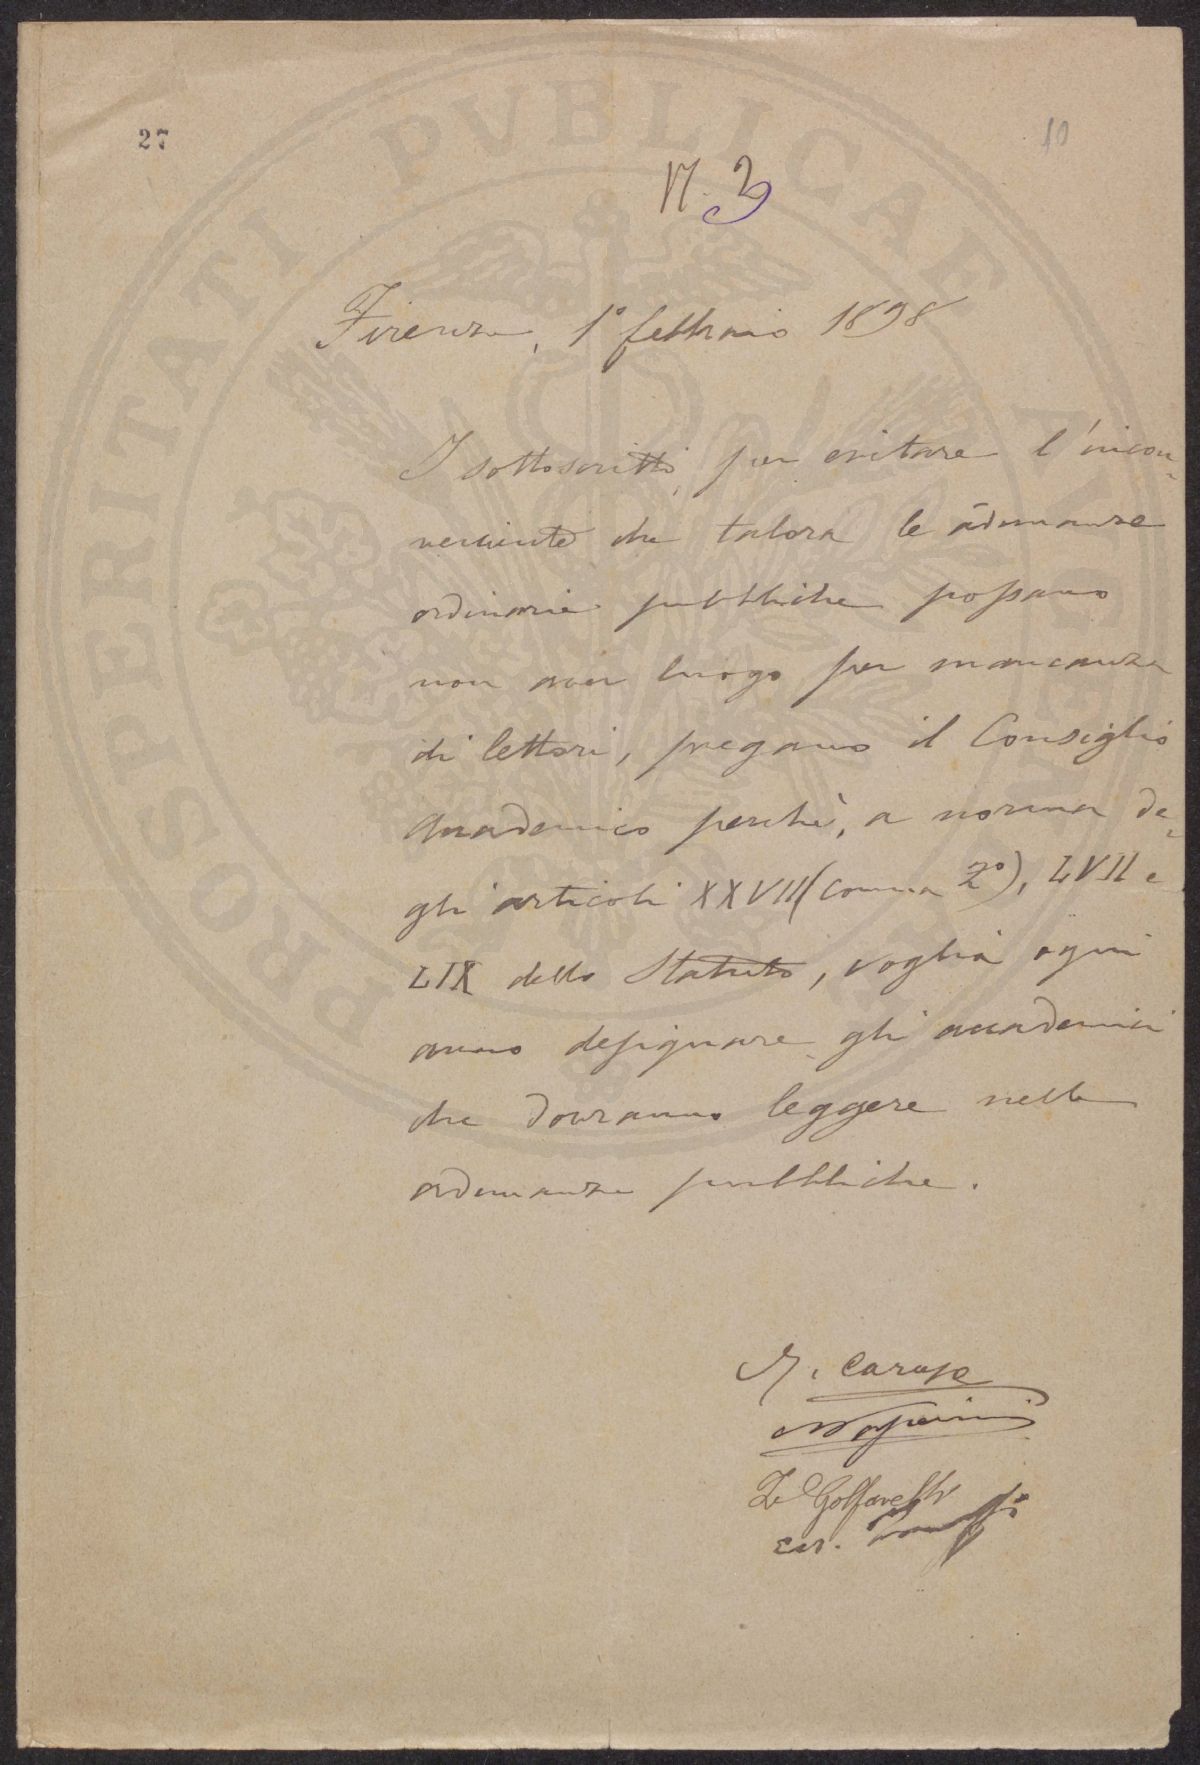 27
10
N. 3
Firenze, 1° febbraio 1898
I sottoscritti, per evitare l'incon-
veniente che talora le adunanze
ordinarie pubbliche possano
non aver luogo per mancanza
di lettori, pregano il Consiglio
Accademico perchè, a norma de-
gli articoli XXVII (comma 2°), LVII e
LIX dello Statuto, voglia ogni
anno designare gli accademici
che dovranno leggere nelle
adunanze pubbliche.
PROSPERITATI PVBLICAE AVGENDAE